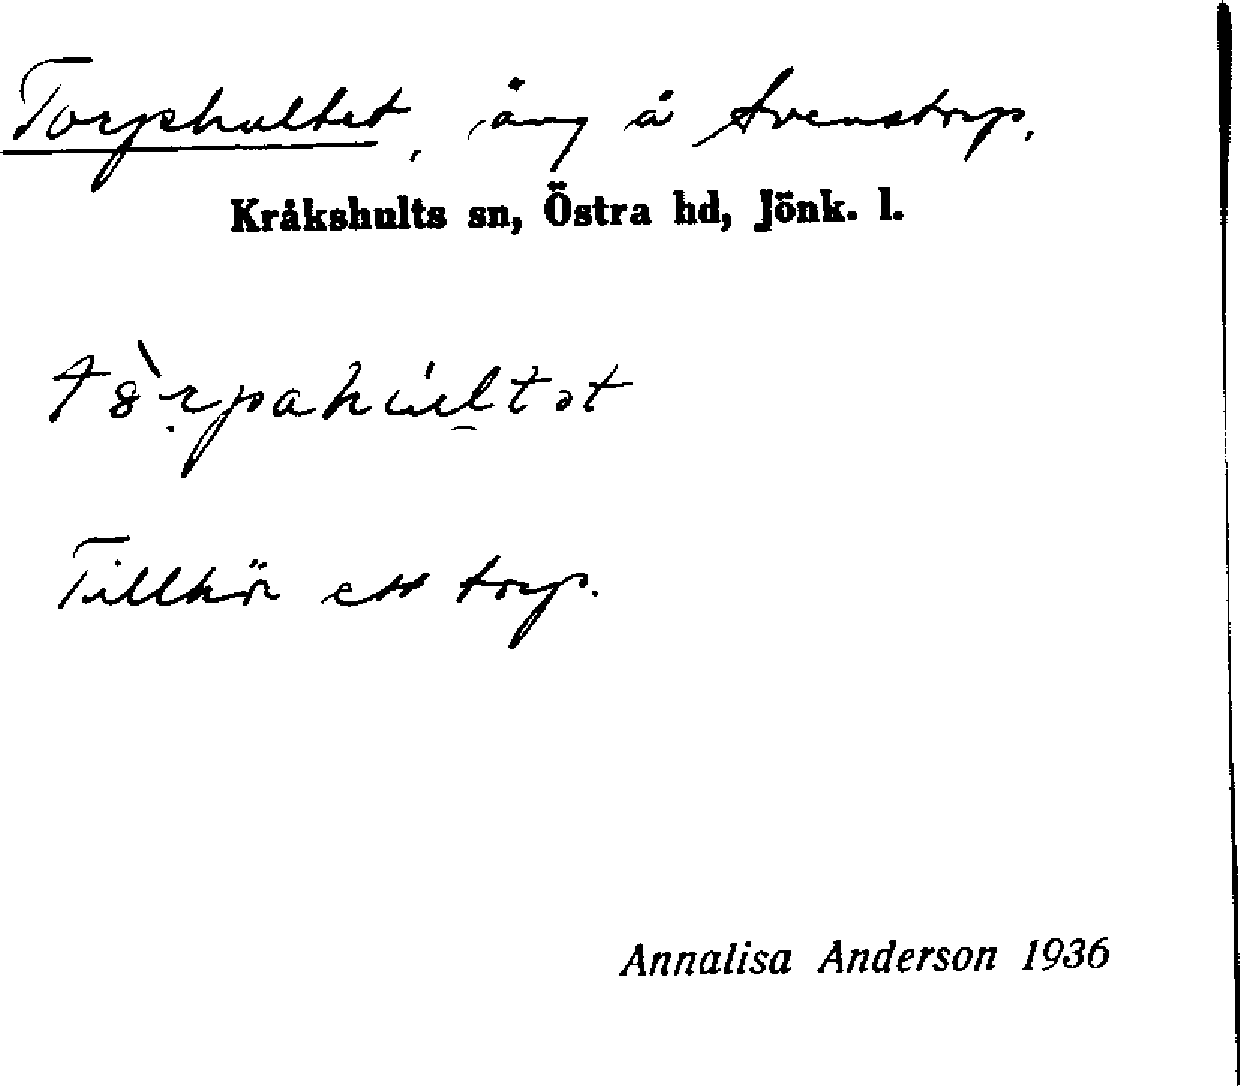 Torpshultet, äng å Svenstorp.
Kråkshults sn, Östra hd, Jönk. l.
Tillhör ett torp.
Annalisa Anderson 1936